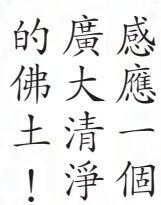 感應一個
廣大清淨
的佛土！